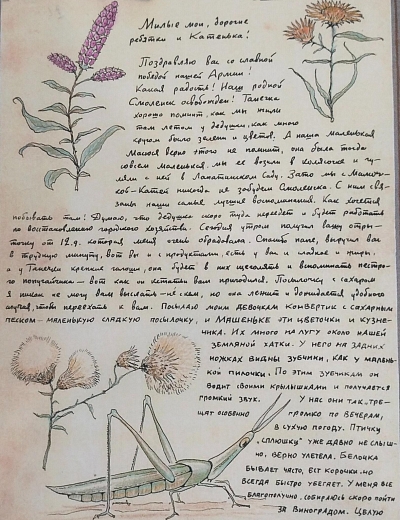 Милые мои, дорогие
ребятки и Катенька!
Поздравляю вас со славной
победой нашей Армии!
Какая радость! Наш родной
Смоленск освобожден! Танечка
хорошо помнит, как мы жили
там летом у дедушки, как много
кругом было зелени и цветов. А наша маленькая
Масюся верно этого не помнит, она была тогда
совсем маленькая, мы ее возили в колясочке и гу-
ляли с ней в Лопатинском Саду. Зато мы с
Катей никогда не забудем Смоленска. С ним свя-
заны наши самые лучшие воспоминания. Как хочется
побывать там! Думаю, что дедушка скоро туда переедет и будет работать
по восстановлению городского хозяйства. Сегодня утром получил вашу откры-
точку от 12.9. которая меня очень обрадовала. Спасибо папе, выручил вас
в трудную минуту, вот вы и с продуктами, есть у вас и сладкое и жиры,
а у Танечки крепкие галоши, она будет в них щеголять и вспоминать пестро-
го попугайчика - вот как он кстати вам пригодился. Посылочку с сахаром
я никак не могу вам выслать - не с кем, но она лежит и дожидается удобного
случая, чтоб переехать к вам. Посылаю моим девочкам конвертик с сахарным
песком - маленькую сладкую посылочку, и Машеньке эти цветочки и кузне-
чика. Их много на лугу около нашей
земляной хатки. У него на задних
ножках видны зубчики, как у малень-
кой пилочки. По этим зубчикам он
водит своими крылышками и получается
громкий звук. У нас они так тре-
щат особенно громко по вечерам,
в сухую погоду. Птичку
"сплюшку" уже давно не слыш-
но, верно улетела. Белочка
бывает часто, ест корочки, но
всегда быстро убегает. У меня все
благополучно, собираюсь скоро пойти
за виноградом. Целую